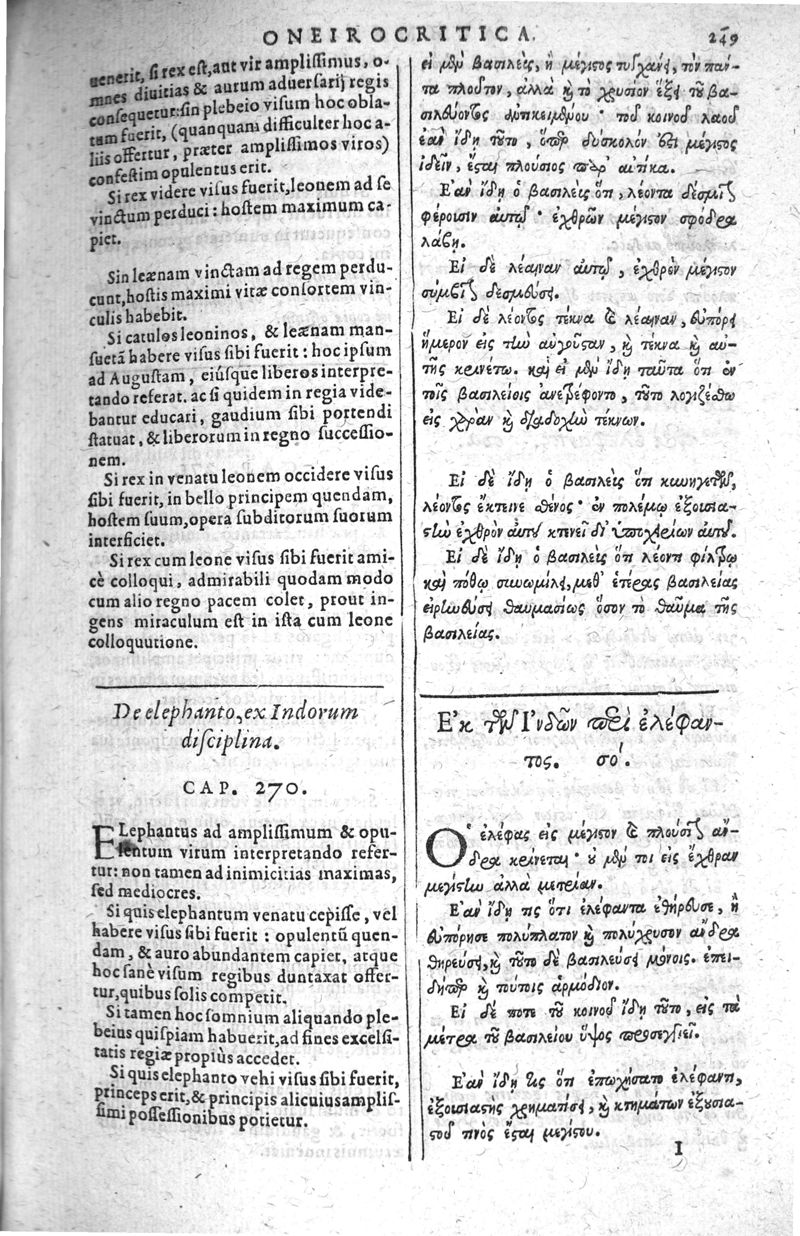 ONEIROCRITICA. 249
uenerit, si rex est, aut vir amplissimus, o-
mnes diuitias & aurum aduersarij regis
consequetur: sin plebeio visum hoc obla-
tum fuerit, (quanquam difficulter hoc a-
liis offertur, præter amplissimos viros)
confestim opulentus erit.
Si rex videre visus fuerit, leonem ad se
vinctum perduci: hostem maximum ca-
piet.
Sin leænam vinctam ad regem perdu-
cunt, hostis maximi vitæ consortem vin-
culis habebit.
Si catulos leoninos, & leænam man-
suetã habere visus sibi fuerit: hoc ipsum
ad Augustam, eiúsque liberos interpre-
tando referat. ac si quidem in regia vide-
bantur educari, gaudium sibi portendi
statuat, & liberorum in regno successio-
nem.
Si rex in venatu leonem occidere visus
sibi fuerit, in bello principem quendam,
hostem suum, opera subditorum suorum
interficiet.
Si rex cum leone visus sibi fuerit ami-
cè colloqui, admirabili quodam modo
cum alio regno pacem colet, prout in-
gens miraculum est in ista cum leone
colloquutione.
De elephanto, ex Indorum
disciplina.
CAP. 270.
ELephantus ad amplissimum & opu-
lentum virum interpretando refer-
tur: non tamen ad inimicitias maximas,
sed mediocres.
Si quis elephantum venatu cepisse, vel
habere visus sibi fuerit: opulentũ quen-
dam, & auro abundantem capiet, atque
hoc sanè visum regibus duntaxat offer-
tur, quibus solis competit.
Si tamen hoc somnium aliquando ple-
beius quispiam habuerit, ad fines excelsi-
tatis regiæ propiùs accedet.
Si quis elephanto vehi visus sibi fuerit,
princeps erit, & principis alicuius amplis-
simi possessionibus potietur.
εἰ μὲν βασιλεὺς, ἢ μέγιστος τυγχάνῃ, τὸν πάν-
τα πλοῦτον, ἀλλὰ καὶ τὸ χρυσίον ἕξει τοῦ βα-
σιλεύοντος ἀντικειμένου· τοῦ κοινοῦ λαοῦ
ἐὰν ἴδῃ τοῦτο, ὅπερ δύσκολόν ἐστι μέγιστος
ἰδεῖν, ἔσται πλούσιος παρ' αὐτίκα.
Ἐὰν ἴδῃ ὁ βασιλεὺς ὅτι, λέοντα δέσμιον
φέρουσιν αὐτῷ· ἐχθρῶν μέγιστον σφόδρα
λάβῃ.
Εἰ δὲ λέαιναν αὐτῷ, ἐχθρὸν μέγιστον
σύμβιον δεσμεύσῃ.
Εἰ δὲ λέοντος τέκνα καὶ λέαιναν, εὐπόρει
ἥμερον εἰς τὴν αὐγοῦσταν, καὶ τέκνα καὶ αὐ-
τῆς κρινέτω. καὶ εἰ μὲν ἴδῃ ταῦτα ὅτι ἐν
τοῖς βασιλείοις ἀνετρέφοντο, τοῦτο λογιζέσθω
εἰς χαρὰν καὶ διαδοχὴν τέκνων.
Εἰ δὲ ἴδῃ ὁ βασιλεὺς ὅτι κυνηγετῶν,
λέοντος ἔκτεινε σθένος· ἐν πολέμῳ ἐξουσια-
στὴν ἐχθρὸν αὐτοῦ κτενεῖ δι' ὑποχειρίων αὐτοῦ.
Εἰ δὲ ἴδῃ ὁ βασιλεὺς ὅτι λέοντι φίλτρῳ
καὶ πόθῳ συνωμίλει, μεθ' ἑτέρας βασιλείας
εἰρηνεύσει θαυμασίως ὅσον τὸ θαῦμα τῆς
βασιλείας.
Ἐκ τῶν Ἰνδῶν περὶ ἐλέφαν-
τος. σό.
Ὁ ἐλέφας εἰς μέγιστον καὶ πλούσιον ἄν-
δρα κρίνεται· οὐ μέν τοι εἰς ἔχθραν
μεγίστην ἀλλὰ μετρίαν.
Ἐὰν ἴδῃ τις ὅτι ἐλέφαντα ἐθήρευσε, ἢ
εὐπόρησε πολύπλατον καὶ πολύχρυσον ἄνδρα
θηρεύσει, καὶ τοῦτο δὲ βασιλεύσι μόνοις. ἐπει-
δήπερ καὶ τούτοις ἁρμόδιον.
Εἰ δέ ποτε τοῦ κοινοῦ ἴδῃ τοῦτο, εἰς τὰ
μέτρα τοῦ βασιλείου ὕψος προσεγγιεῖ.
Ἐὰν ἴδῃ τις ὅτι ἐπωχήσατο ἐλέφαντι,
ἐξουσιαστὴς χρηματίσει, καὶ κτημάτων ἐξουσια-
στοῦ τινὸς ἔσται μεγίστου.
I